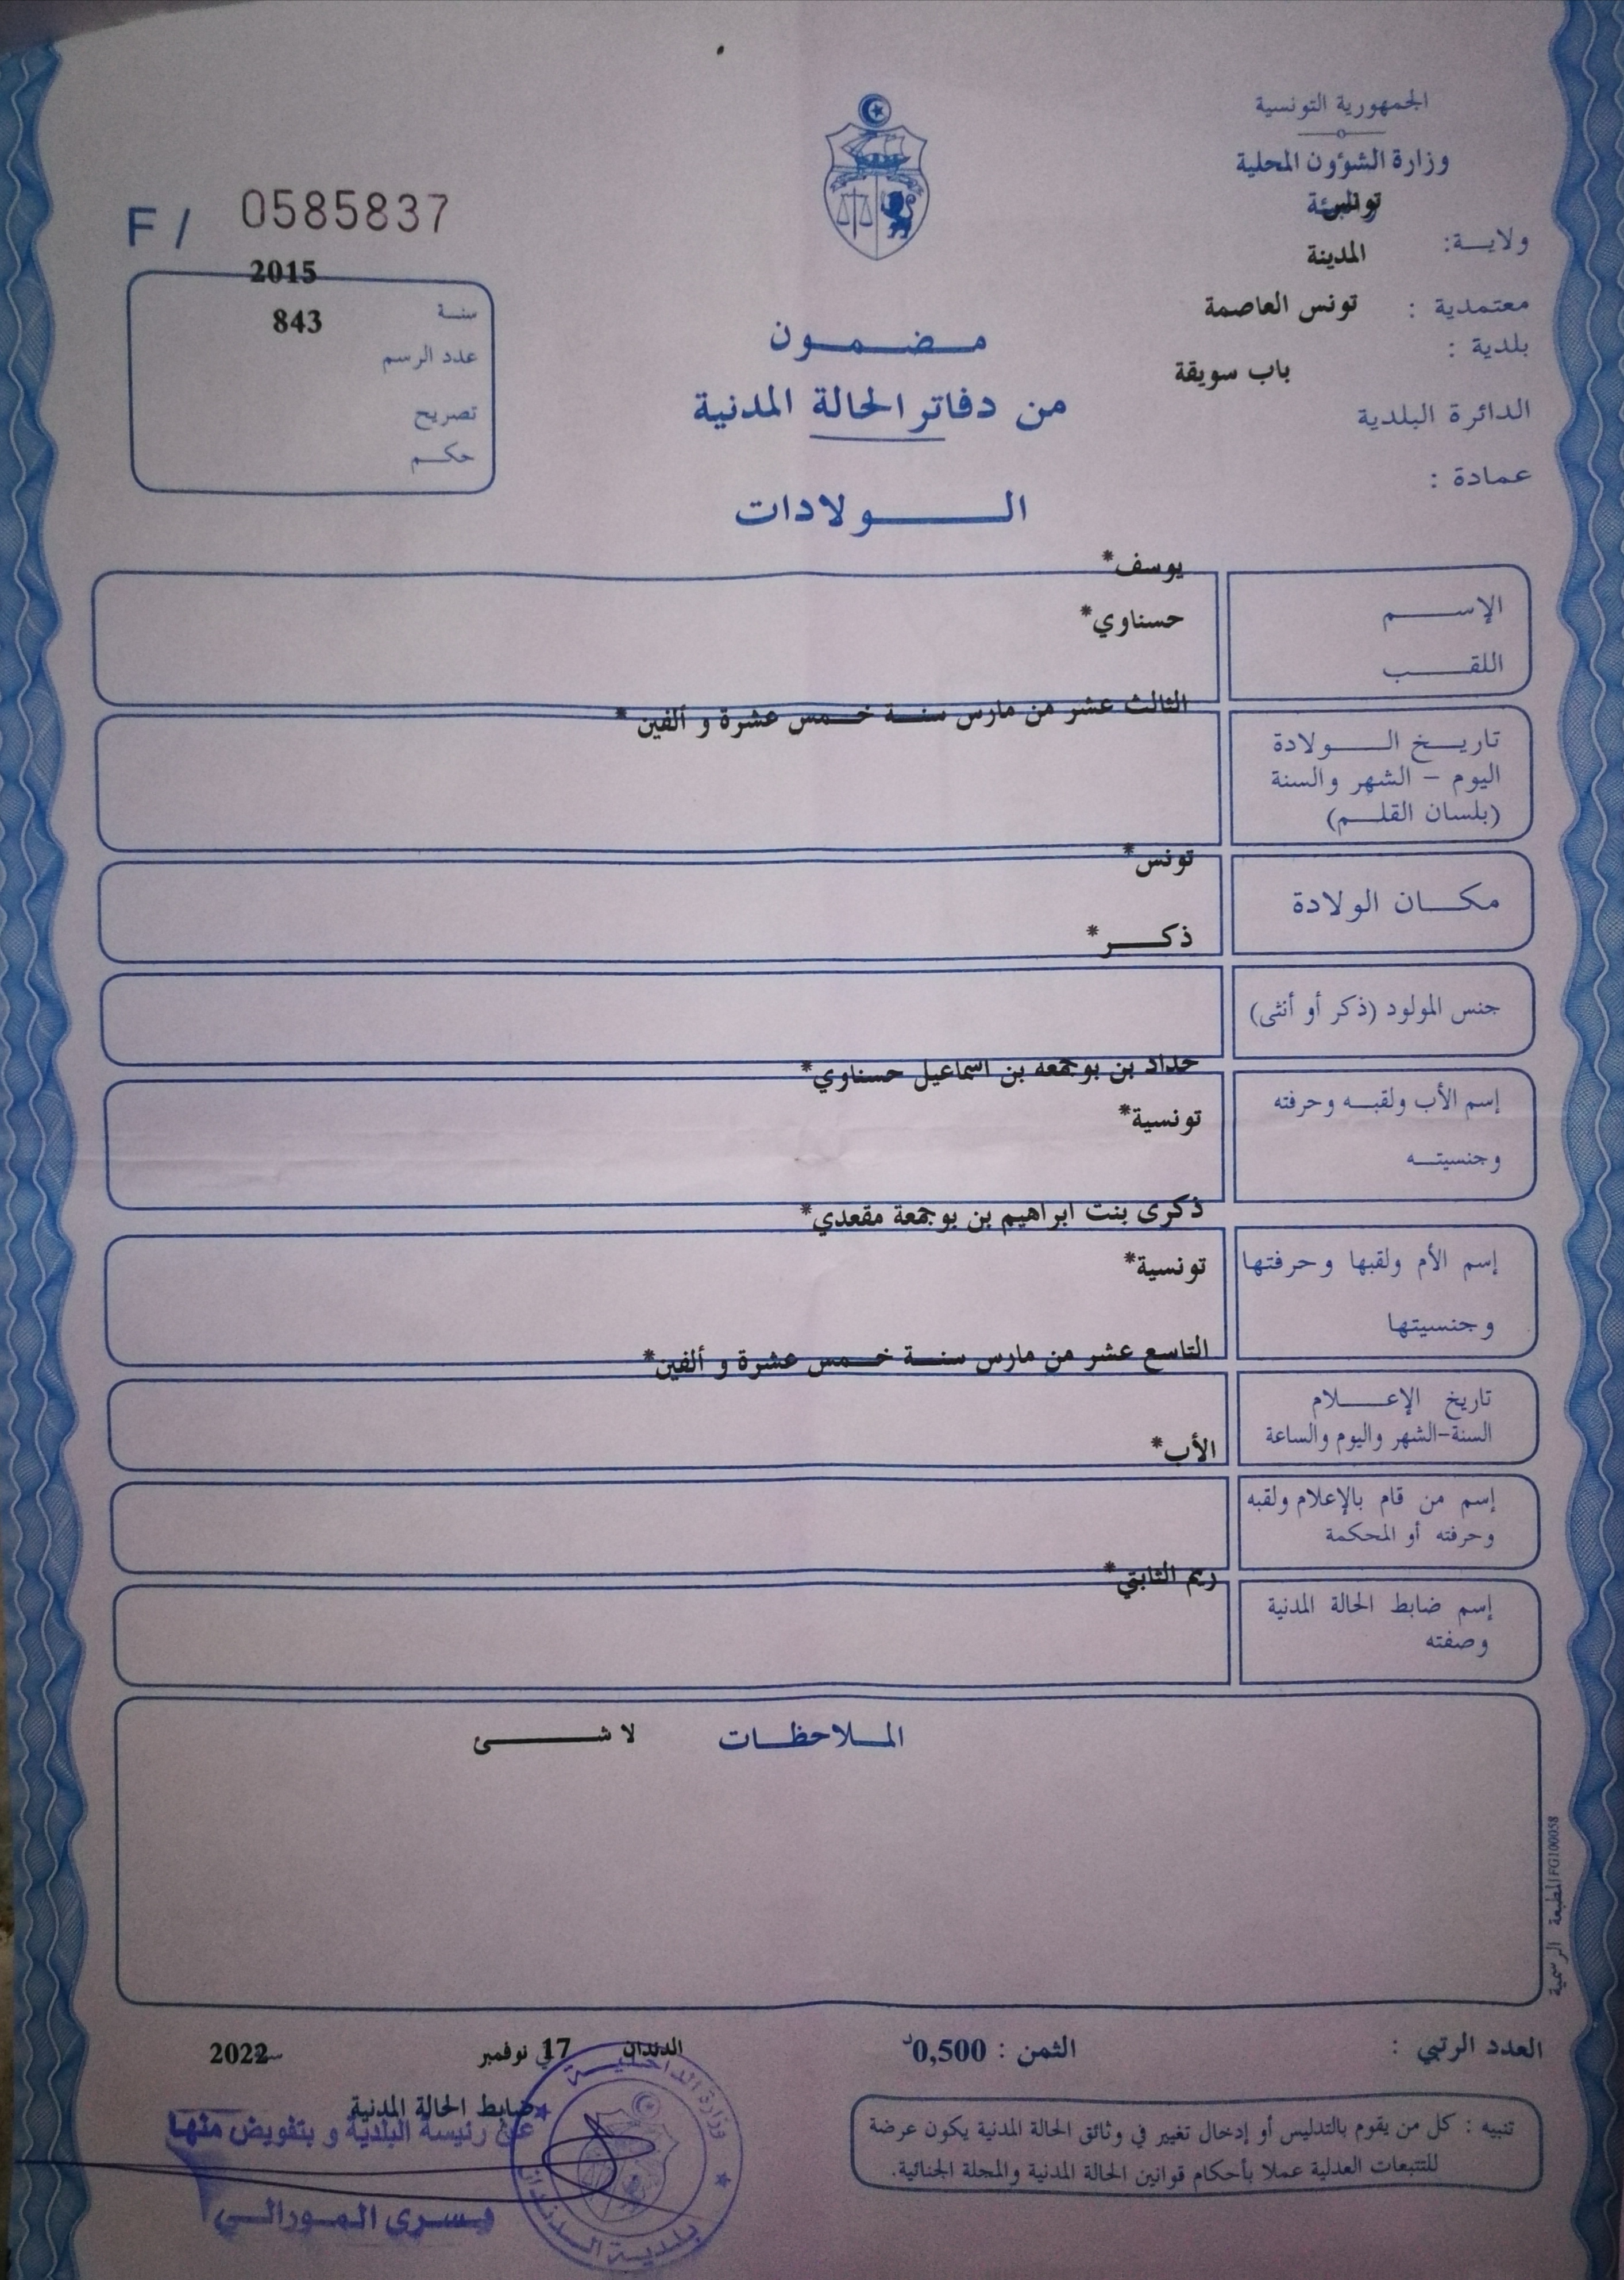 الجمهورية التونسية
وزارة الشؤون المحلية
والبيئة
ولايـــة: تونس
معتمدية : المدينة
بلدية : تونس العاصمة
الدائرة البلدية باب سويقة
عمادة :
F / 0585837
سنـة 2015
عدد الرسم 843
تصريح
حكـم
مـضـمـون
من دفاتر الحالة المدنية
الــولادات
الإســـم يوسف*
اللقـــب حسناوي*
تاريـخ الــولادة الثالث عشر من مارس سنـة خـمس عشرة و ألفين *
اليوم – الشهر والسنة
(بلسان القلـم)
مكـان الولادة تونس*
جنس المولود (ذكر أو أنثى) ذكـــر*
إسم الأب ولقبـه وحرفته حداد بن بوجمعه بن اسماعيل حسناوي*
وجنسيتـه تونسية*
إسم الأم ولقبها وحرفتها ذكرى بنت ابراهيم بن بوجمعة مقعدي*
وجنسيتها تونسية*
تاريخ الإعـــلام التاسع عشر من مارس سنـة خـمس عشرة و ألفين*
السنة-الشهر واليوم والساعة
إسم من قام بالإعلام ولقبه الأب*
وحرفته أو المحكمة
إسم ضابط الحالة المدنية ريم الثابتي*
وصفته
المـلاحظـات لا شـــئ
المطبعة الرسمية FG100058
العدد الرتبي :
الثمن : 0,500د
الدندان في 17 نوفمبر سنة 2022
ضابط الحالة المدنية
عن رئيسة البلدية و بتفويض منها
يسرى المورالـي
وزارة الداخلية
بلدية الدندان
تنبيه : كل من يقوم بالتدليس أو إدخال تغيير في وثائق الحالة المدنية يكون عرضة
للتتبعات العدلية عملا بأحكام قوانين الحالة المدنية والمجلة الجنائية.